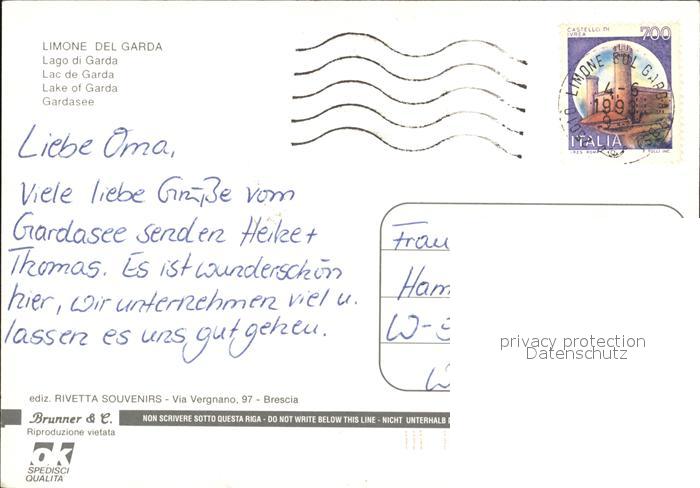 LIMONE DEL GARDA
Lago di Garda
Lac de Garda
Lake of Garda
Gardasee
CASTELLO DI
IVREA
700
LIMONE SUL GARDA
4-6
199
ITALIA
Liebe Oma,
Viele liebe Grüße vom
Gardasee senden Heike +
Thomas. Es ist wunderschön
hier, wir unternehmen viel u.
lassen es uns gut gehen.
Frau
Ham
W-
W
privacy protection
Datenschutz
ediz. RIVETTA SOUVENIRS - Via Vergnano, 97 - Brescia
Brunner & C.
NON SCRIVERE SOTTO QUESTA RIGA - DO NOT WRITE BELOW THIS LINE - NICHT UNTERHALB
Riproduzione vietata
ok
SPEDISCI
QUALITÀ